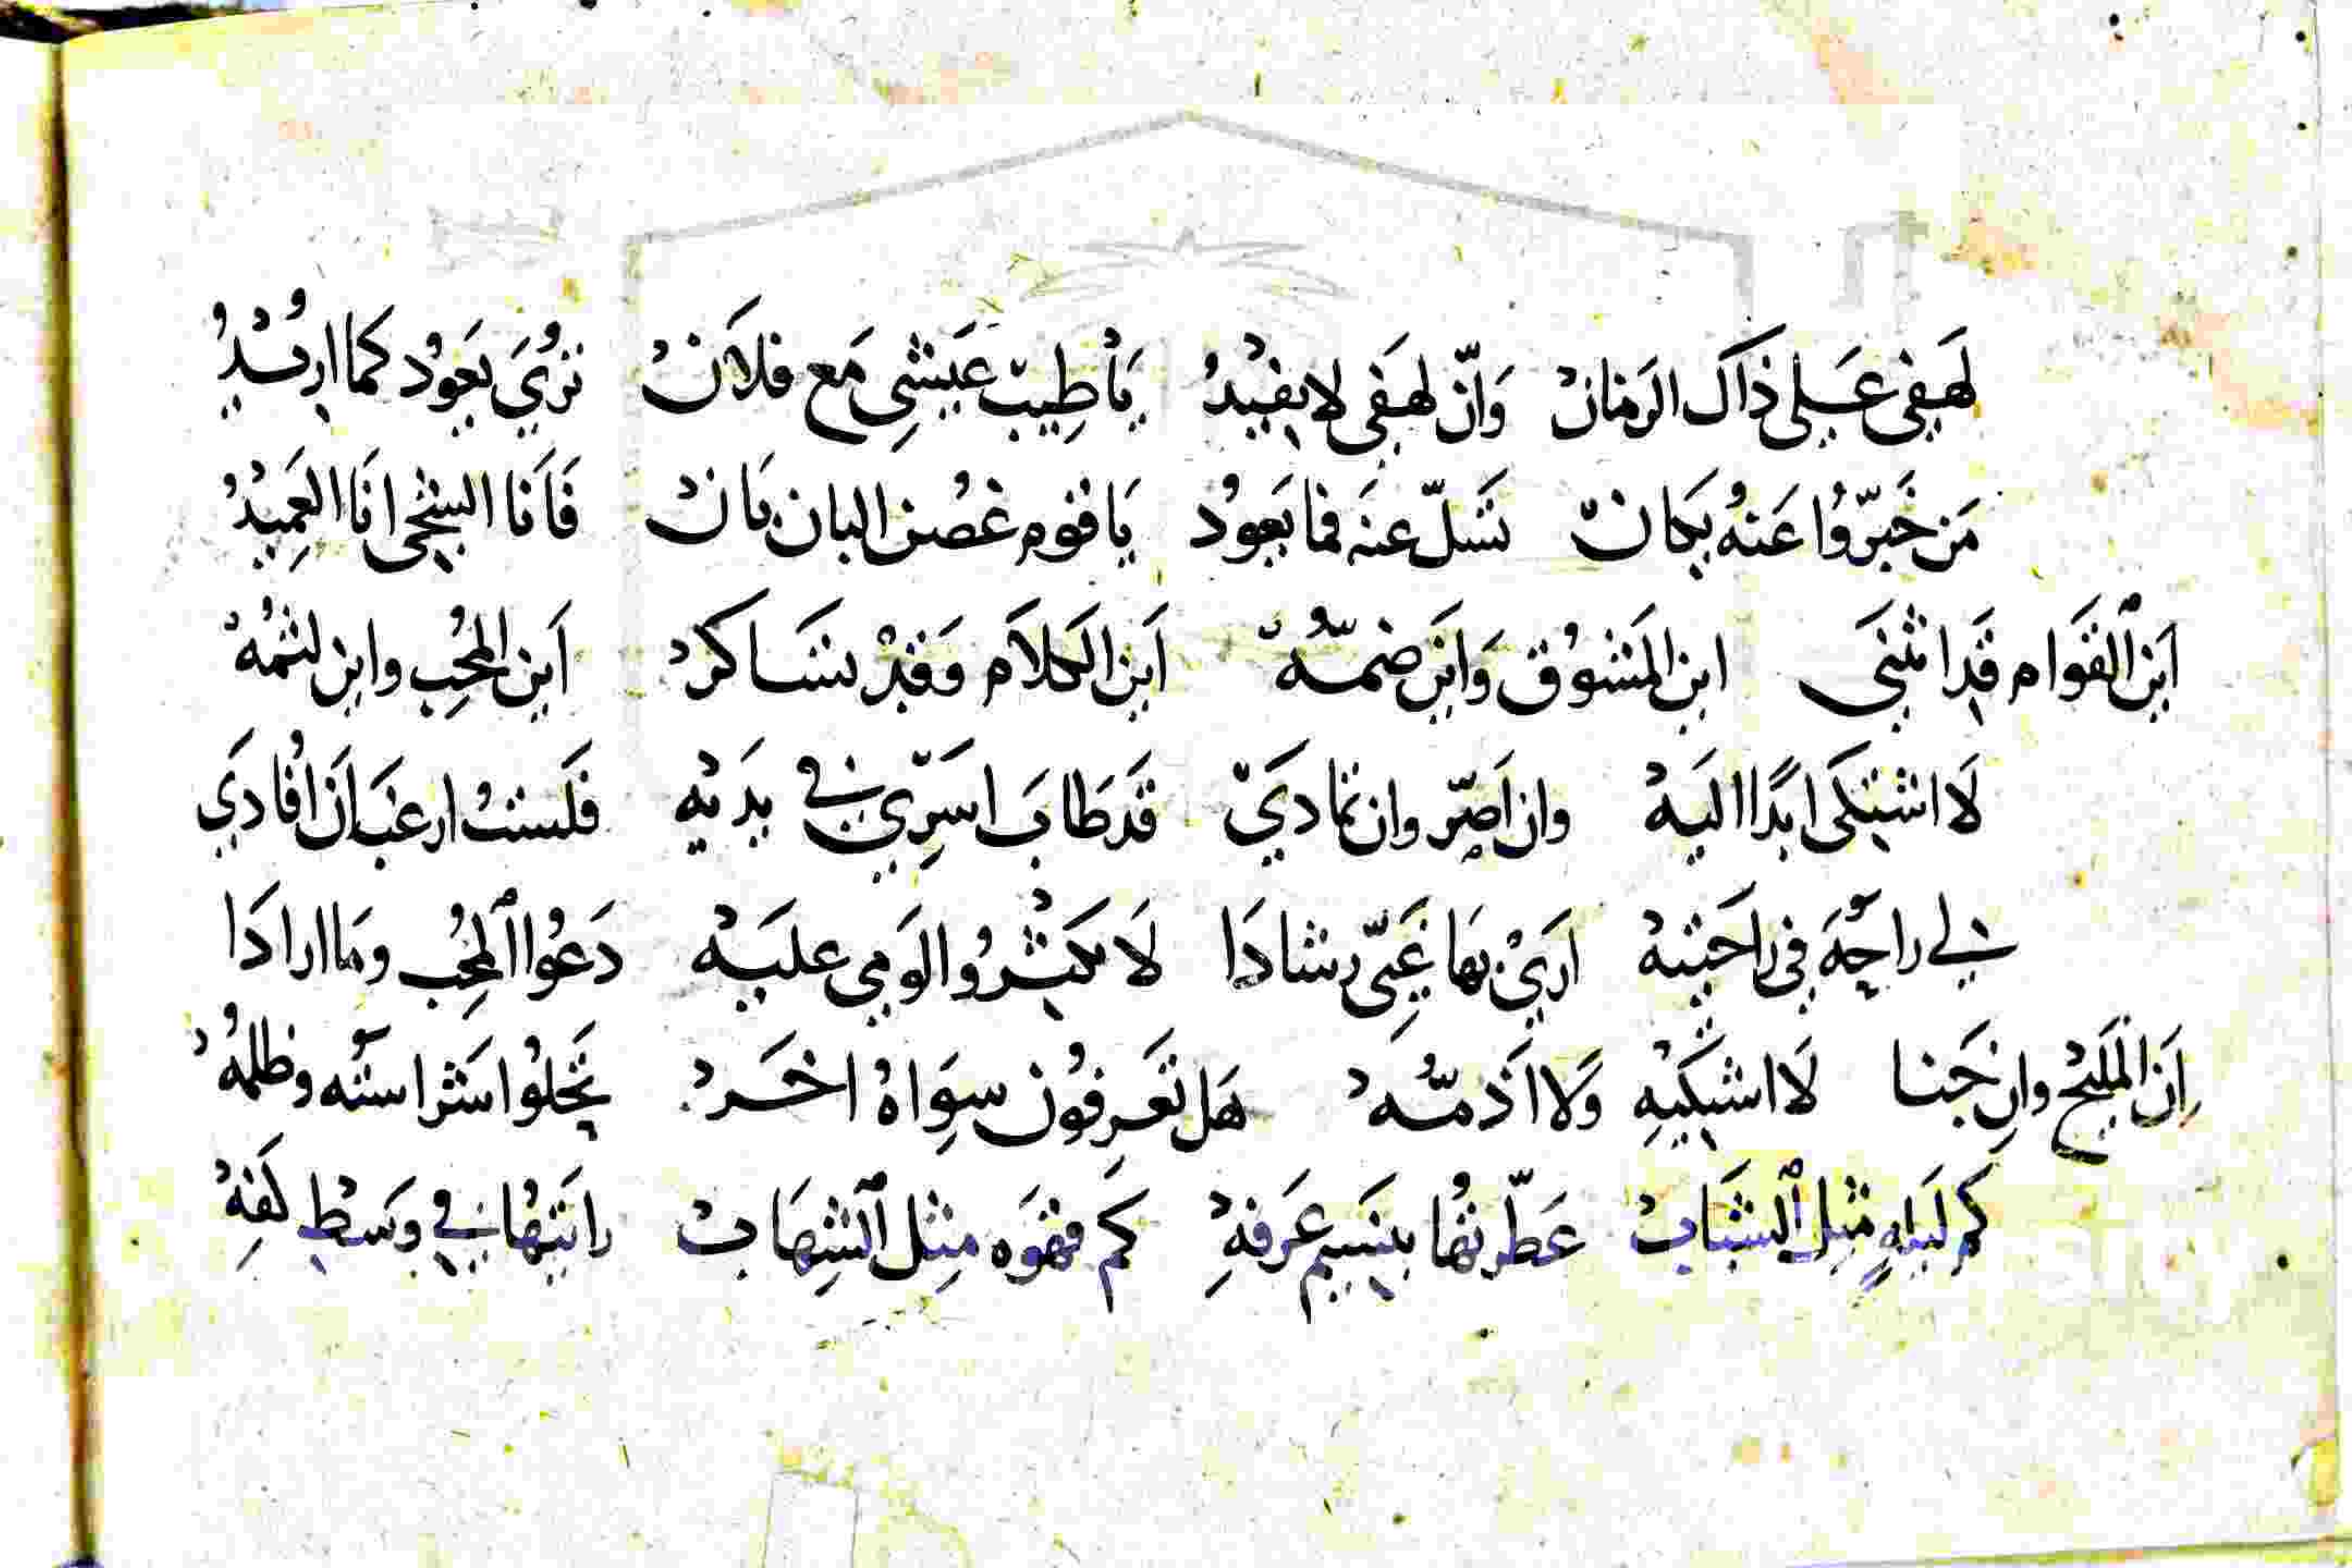 لَهفي عَلى ذَاكَ الزمَانْ وَانّ لهفَي لا يفيْدُ يَا طِيبَ عَيشِي مَع فلاَنْ تُرُيَ يَعوُد كَما ارِيْدُ
مَن خَبّروُا عَنهُ بكَانْ تسَلّ عنهَ فما يَعودُ يَا قوم غصُن البان بَانْ فَاَنا الشجَي انَا العَمِيدُ
اَين ٱلقَوام قَد انثنَي اين المَشوُق وَاينَ ضمّهُ اَين الكَلاَم وَقدْ تسَاكرْ اَين المحُِب واين لثمُهْ
لَا اشتكَي ابدًا اليهْ وان اَصّر وان تمادىَْ قَد طَابَ اسَرِّي في يدَيْه فلَستْ ارغبَ اَن افُادَي
لي راحَة في راحَتيهْ ارَيْ بهَا غَيِّى رشادَا لَا تكثرُوا لوَمي عليَهْ دَعُوا ٱلمحُِب ومَا ارادَا
اِنَ المَليَحْ وان جَنا لَا اشتكَيْهِ وَلا اَذمّهُ هَل تعَرفوُن سِوَاهُ اخَرْ تحَلوُا شَراسته وظلمُهْ
كم لَيلهٍ مثِل ٱلشبَابْ عَطّرتُها بنسَيم عَرفهِْ كَم قهوَه مثِل ٱلشِهَابْ رايَتهُا في وسَطْ كَفِهْ